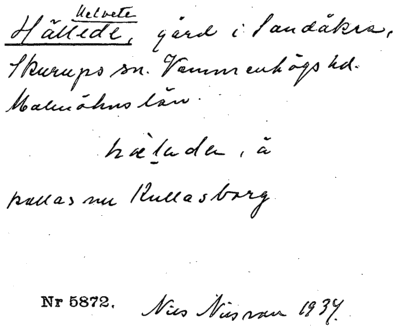 Helvete
Hällede, gård i Sandåkra,
Skurups sn. Vemmenhögs hd.
Malmöhus län.
hælada, ä
kallas nu Kullasborg
Nr 5872. Nils Nilsson 1937.